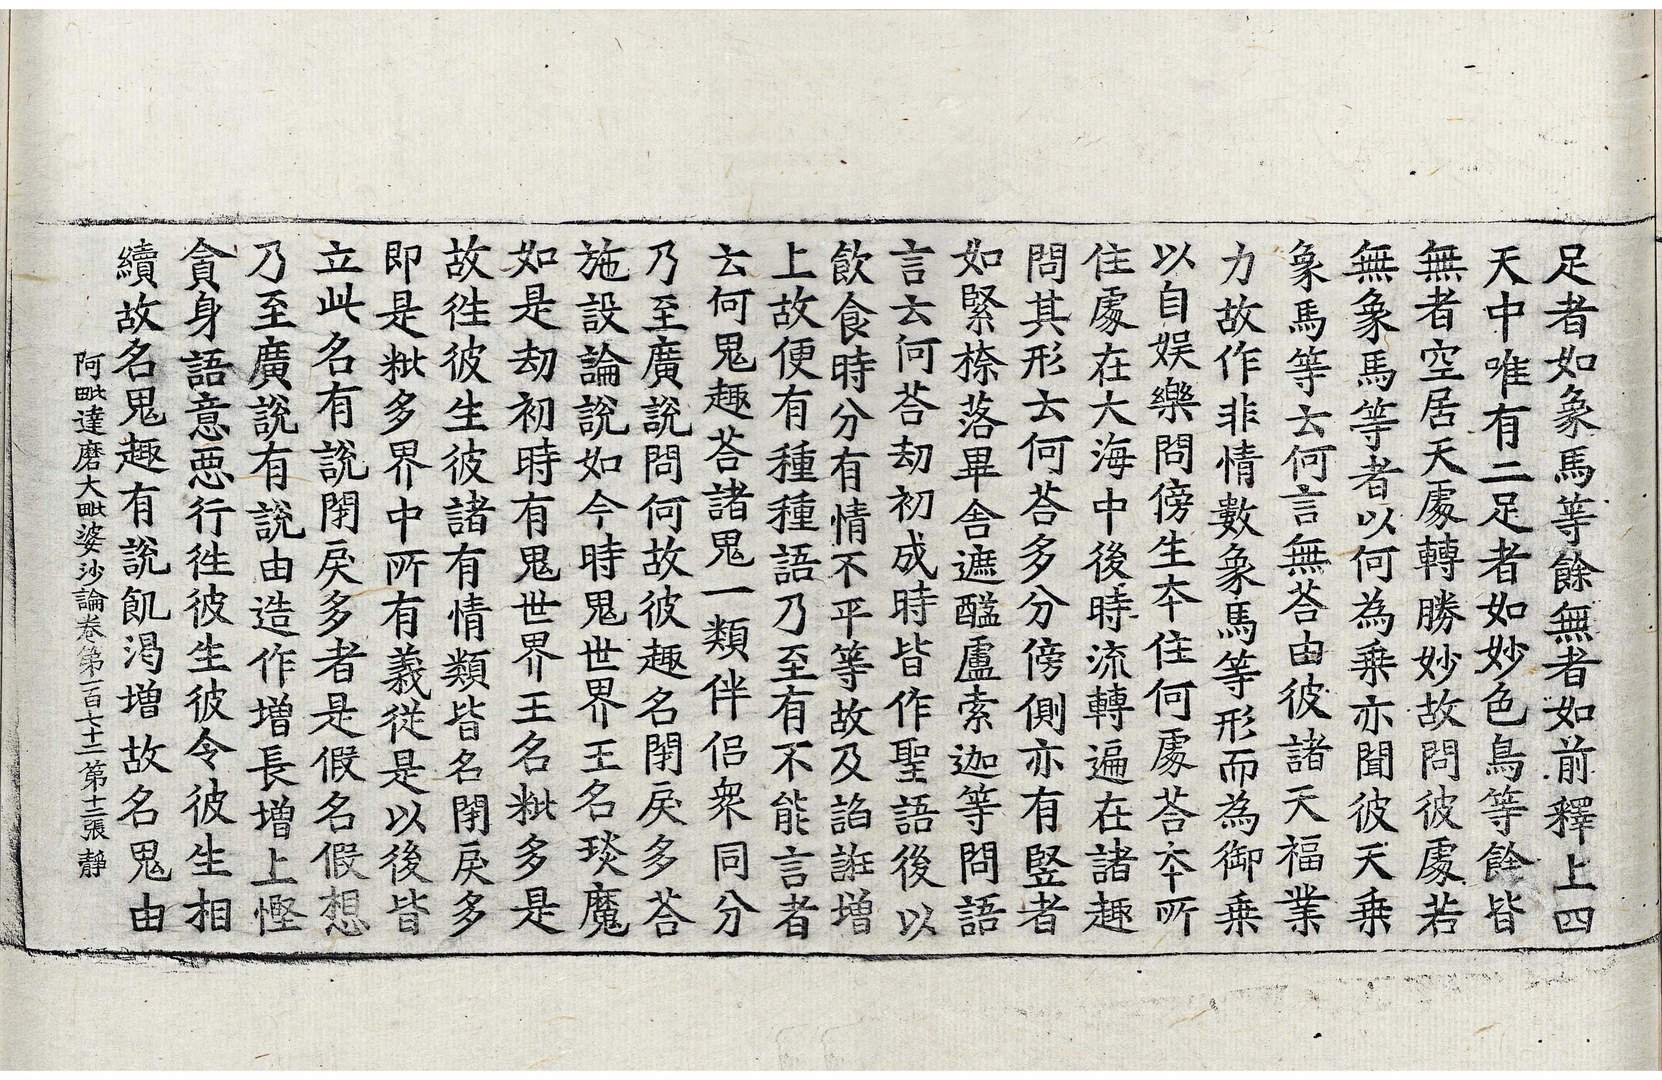 足者如象馬等餘無者如前釋上四
天中唯有二足者如妙色鳥等餘皆
無者空居天天處轉勝妙故問彼處若
無象馬等者以何為乗亦聞彼天乗
象馬等去何言無荅由彼諸天福業
力故作非情數象馬等形而為御乗
以自娱樂問傍生夲住何處荅夲所
住處在大海中後時流轉遍在諸趣
問其形去何荅多分傍側亦有竪者
如緊㮈落畢舍遮醯盧索迦等問語
言云何荅劫初成時皆作聖語後以
飲食時分有情不平等故及諂誑増
上故便有種種語乃至有不能言者
云何鬼趣荅諸鬼一類伴侣衆同分
乃至廣說問何故彼趣名閇戾多荅
施設論說如今時鬼世界王名琰魔
如是劫初時有鬼世界王名粃多是
故徃彼生彼諸有情類皆名閇戾多
即是粃多界中所有義從是以後皆
立此名有說閇戾多者是假名假想
乃至廣說有說由造作増長増上慳
貪身語意惡行徃彼生彼令彼生相
續故名鬼趣有說飢渴増故名鬼由
阿毗達磨大毗婆沙論卷第一百七十二第十二張 靜